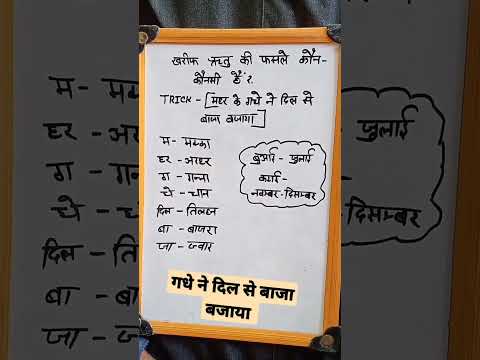 खरीफ ऋतु की फसले कौन-
कौनसी हैं ?
TRICK - [महर के गधे ने दिल से
बाजा बजाया]
म - मक्का
हर - अरहर
ग - गन्ना
धे - धान
दिल - तिलहन
बा - बाजरा
जा - ज्वार
बुआई - जुलाई
कटाई -
नवम्बर-दिसम्बर
गधे ने दिल से बाजा
बजाया